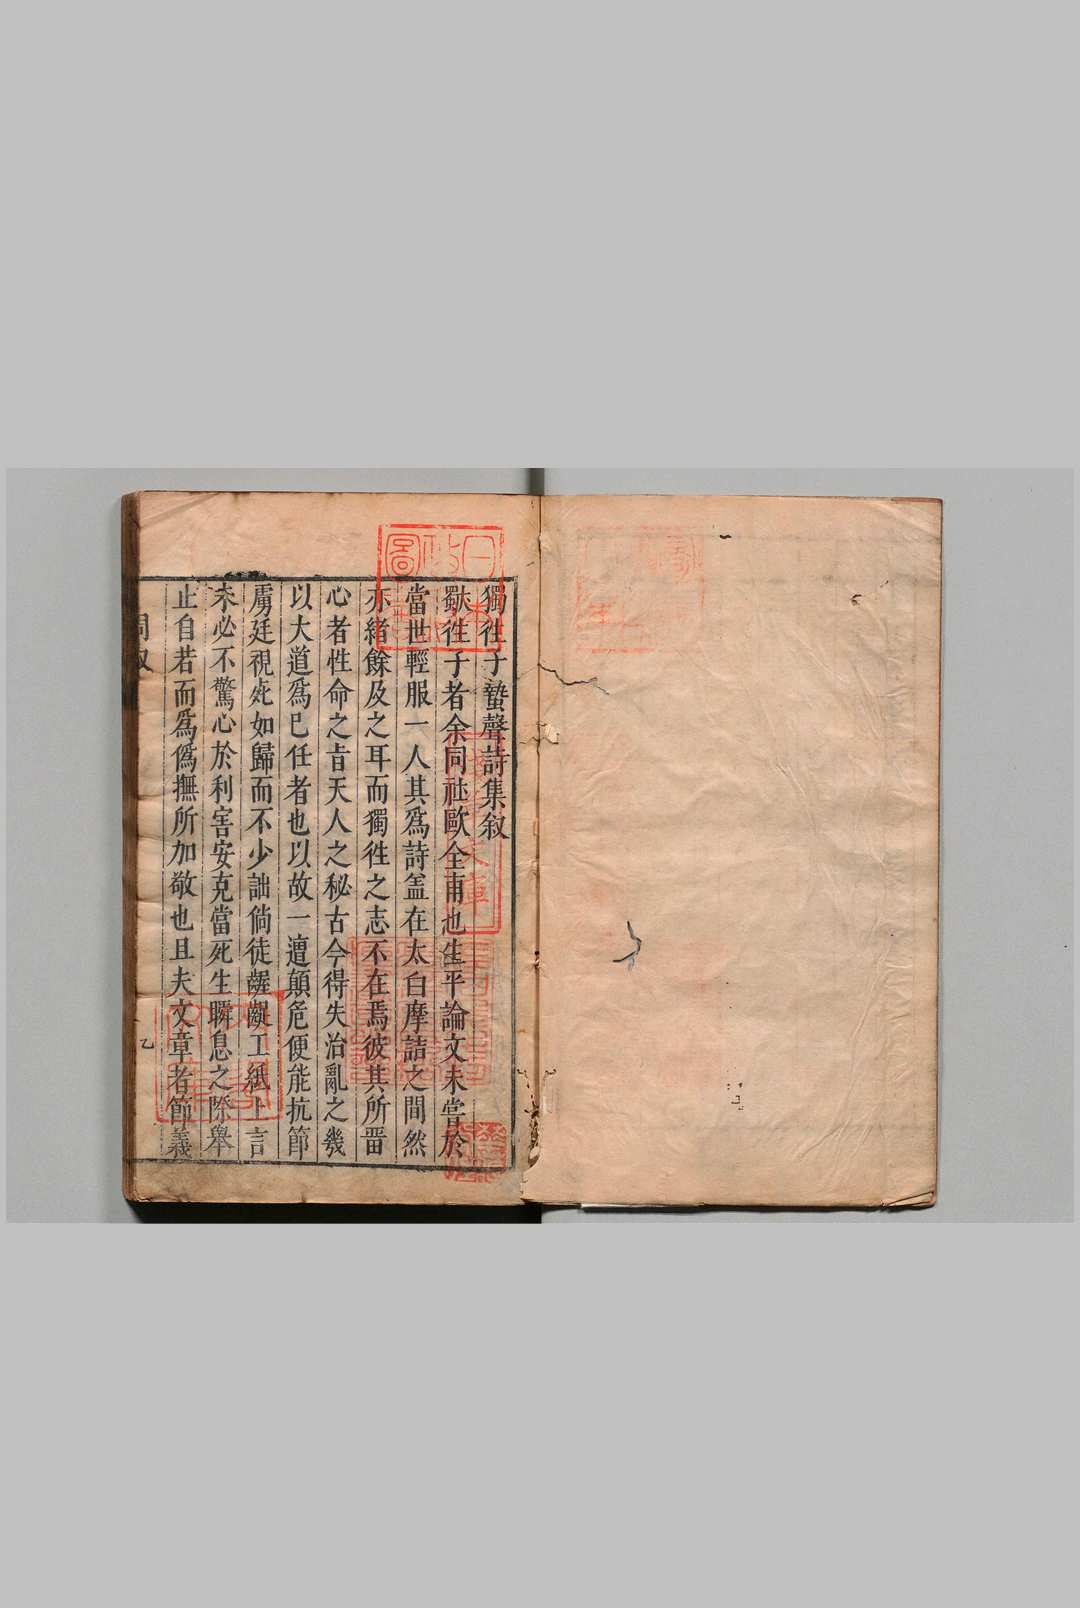 獨徃子蟄聲詩集叙
獨徃子者余同社歐全甫也生平論文未嘗於
當世輕服一人其爲詩盖在太白摩詰之間然
亦緒餘及之耳而獨徃之志不在焉彼其所留
心者性命之旨天人之秘古今得失治亂之幾
以大道爲已任者也以故一遭顛危便能抗節
虜廷視死如歸而不少詘倘徒齷齪工紙上言
未必不驚心於利害安克當死生瞬息之際舉
止自若而爲僞撫所加敬也且夫文章者節義
日本
圖
文庫